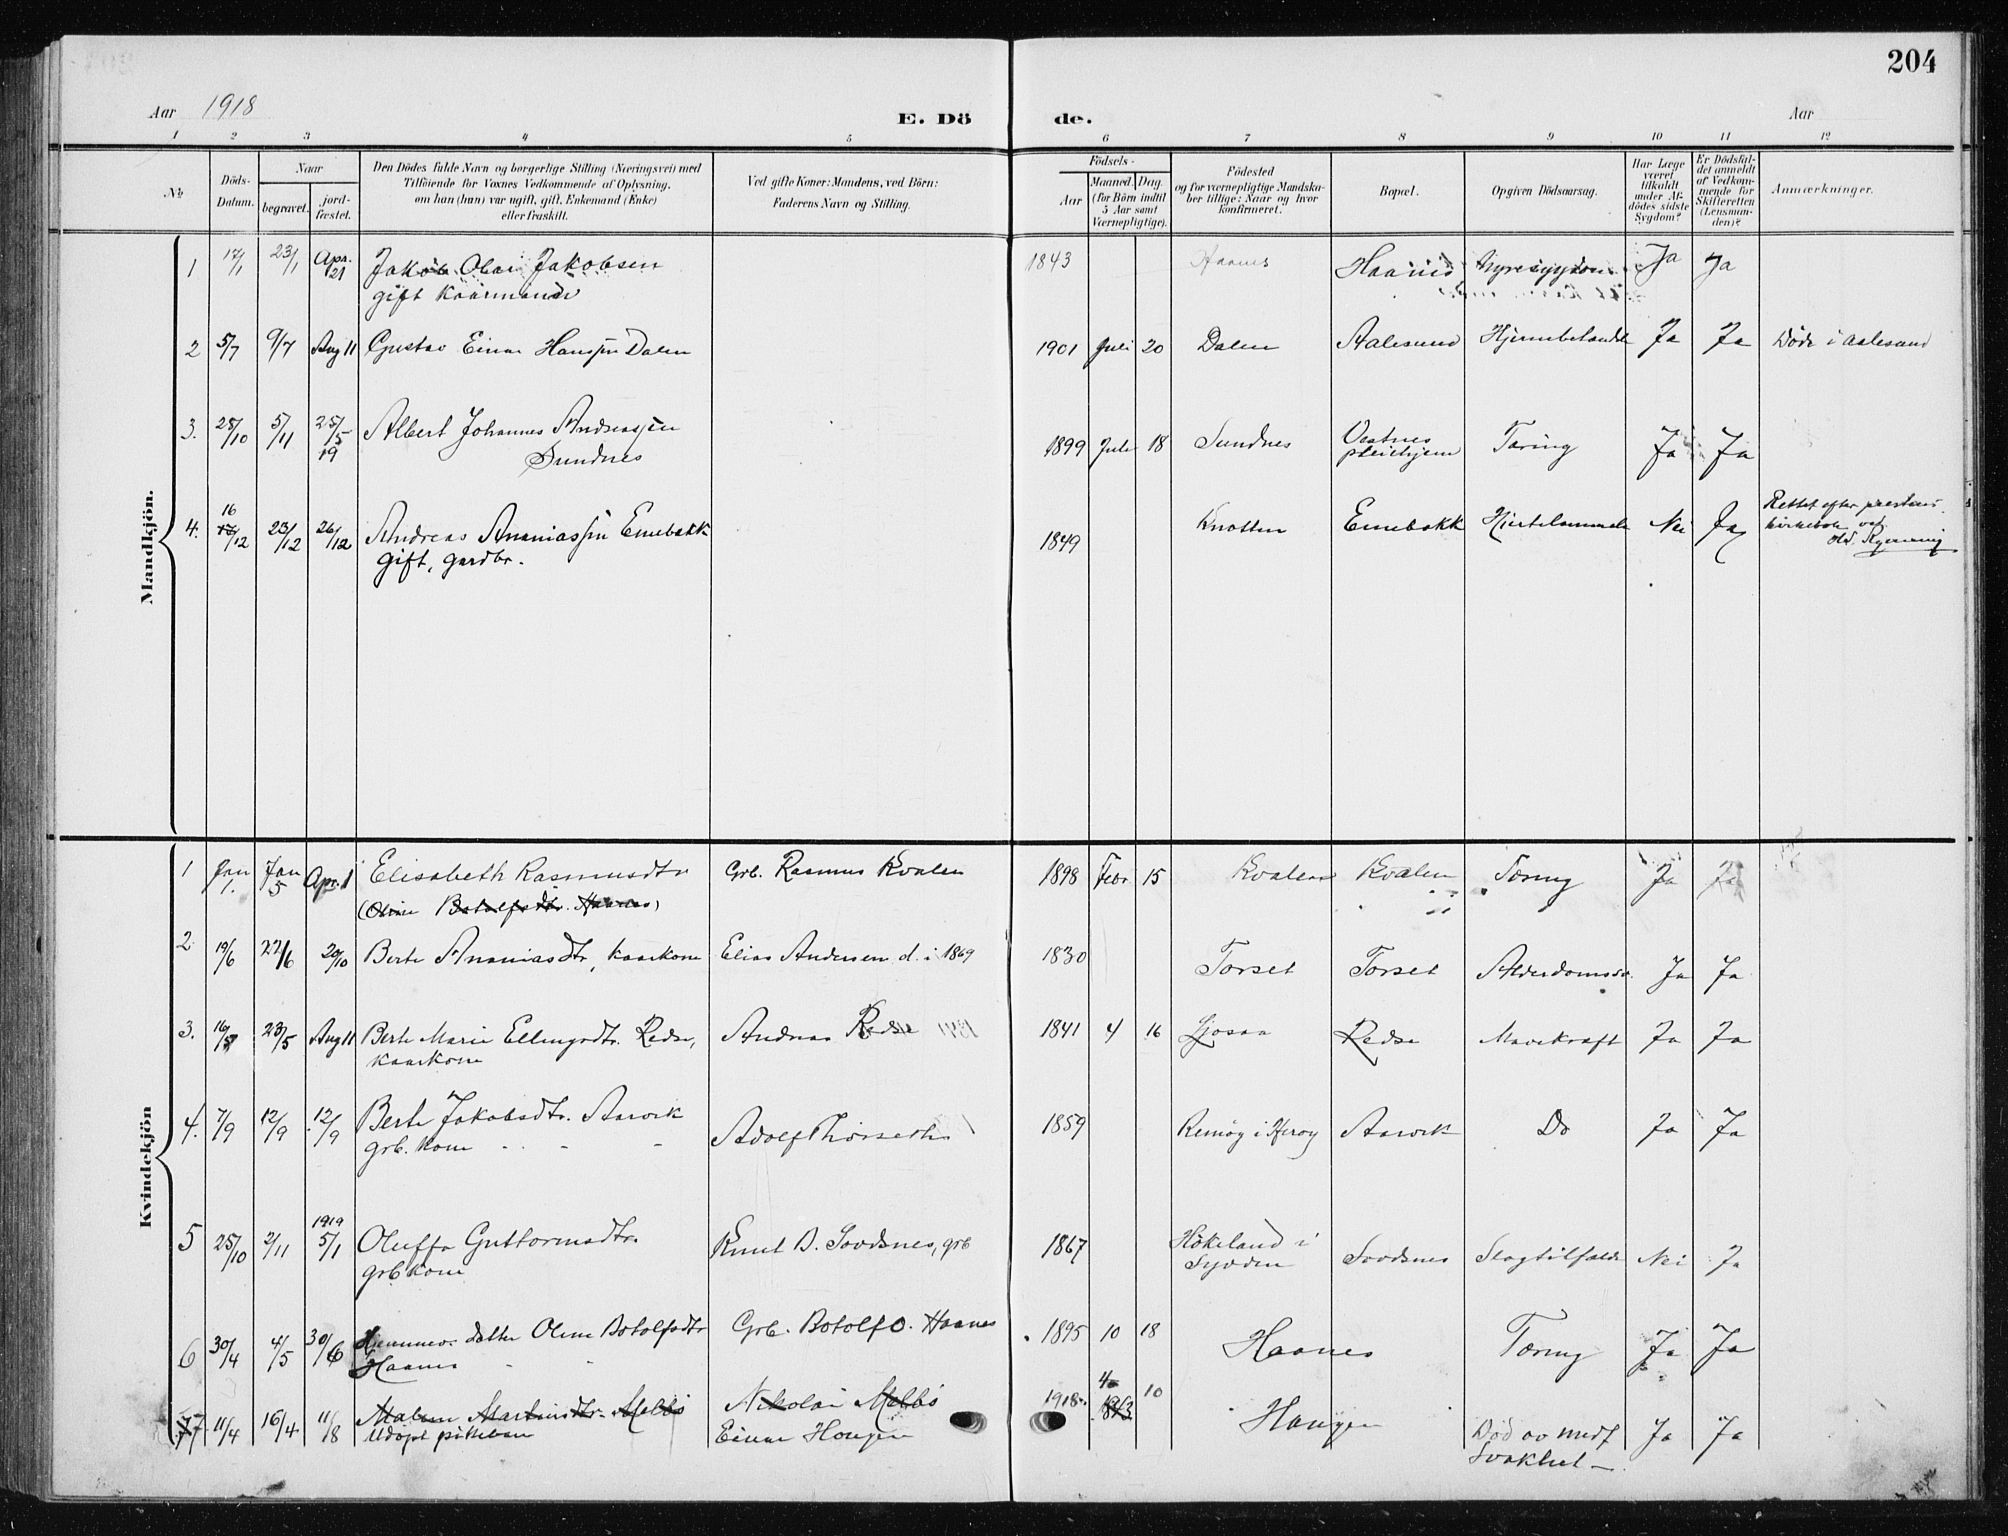 204
Aar 1918
E. Döde.
Aar
1 2 3 4 5 6 7 8 9 10 11 12
No.
Döds-Datum.
Naar
begravet.
jordfæstet.
Den Dödes fulde Navn og borgerlige Stilling (Næringsvei) med
Tilföiende for Voxnes Vedkommende af Oplysning,
om han (hun) var ugift, gift, Enkemand (Enke)
eller fraskilt.
Ved gifte Koner: Mandens, ved Börn:
Faderens Navn og Stilling.
Födsels-
Aar
Maaned. Dag.
(for Börn indtil
5 Aar samt
Værnepligtige).
Födested
og for værnepligtige Mandskaber tillige: Naar og hvor
konfirmeret.
Bopæl.
Opgiven Dödsaarsag.
Har Læge været tilkaldt under Afdödes sidste Sygdom?
Er Dödsfaldet anmeldt af Vedkommende for Skifteretten (Lensmanden)?
Anmærkninger.
Mandkjön.
1 17/1 23/1 Apr. 21 Jakob Olai Jakobsen 1843 Haanes Haanes Nyresygdom Ja Ja
gift kaarmand
2 5/7 9/7 Aug 11 Gustav Einar Hanssen Dalen 1901 Juli 20 Dalen Aalesund Hjernebetændelse Ja Ja Døde i Aalesund
3. 28/10 5/11 25/5 19 Albert Johannes Andreassen 1899 Juli 18 Sundnes Vestnes pleiehjem Tæring Ja Ja
Sundnes
4. 16/12 23/12 26/12 Andreas Ananiassen Emebakk 1849 Knotten Emebakk Hjertelammelse Nei Ja Rettet efter prestens kirkebok ved
gift, gardbr.
Kvindekjön
1 Jan 1. Jan 5 Apr. 1 Elisabeth Rasmusdtr Grb. Rasmus Kvalen 1898 Febr 15 Kvalen Kvalen Tæring Ja Ja
(Oline Botolfsdtr. Haanes)
2 19/6 22/6 20/10 Berte Ananiasdtr, kaarkone Elias Andersen d. i 1869 1830 Torset Torset Alderdomssv. Ja Ja
3. 16/5 23/5 Aug 11 Berte Marie Ellingsdtr. Redse, Andreas Redse 1841 4 16 Ljosaa Redse Mavekræft Ja Ja
kaarkone
4. 7/9 12/9 12/9 Berte Jakobsdtr. Aarvik Adolf Thorseth 1859 Remøy i Herøy Aarvik Do Ja Ja
grb. kone
5 25/10 2/11 1919 5/1 Oluffa Guttormsdtr. Knut B. Sordsnes, grb 1867 Høkeland i Syvden Sordsnes Slagtilfælde Nei Ja
grb kone
6 30/4 4/5 30/6 Hjemmev. datter Oline Botolfsdtr Grb. Botolf O. Haanes 1895 10 18 Haanes Tæring Ja Ja
Haanes
7 11/4 16/4 11/8 Malene Martinsdtr. Melbö Nikolai Melbö 1918 1863 4 10 Haugen Død av medf. Svakhet Ja Ja
Udøpt pikebarn Einar Haugen